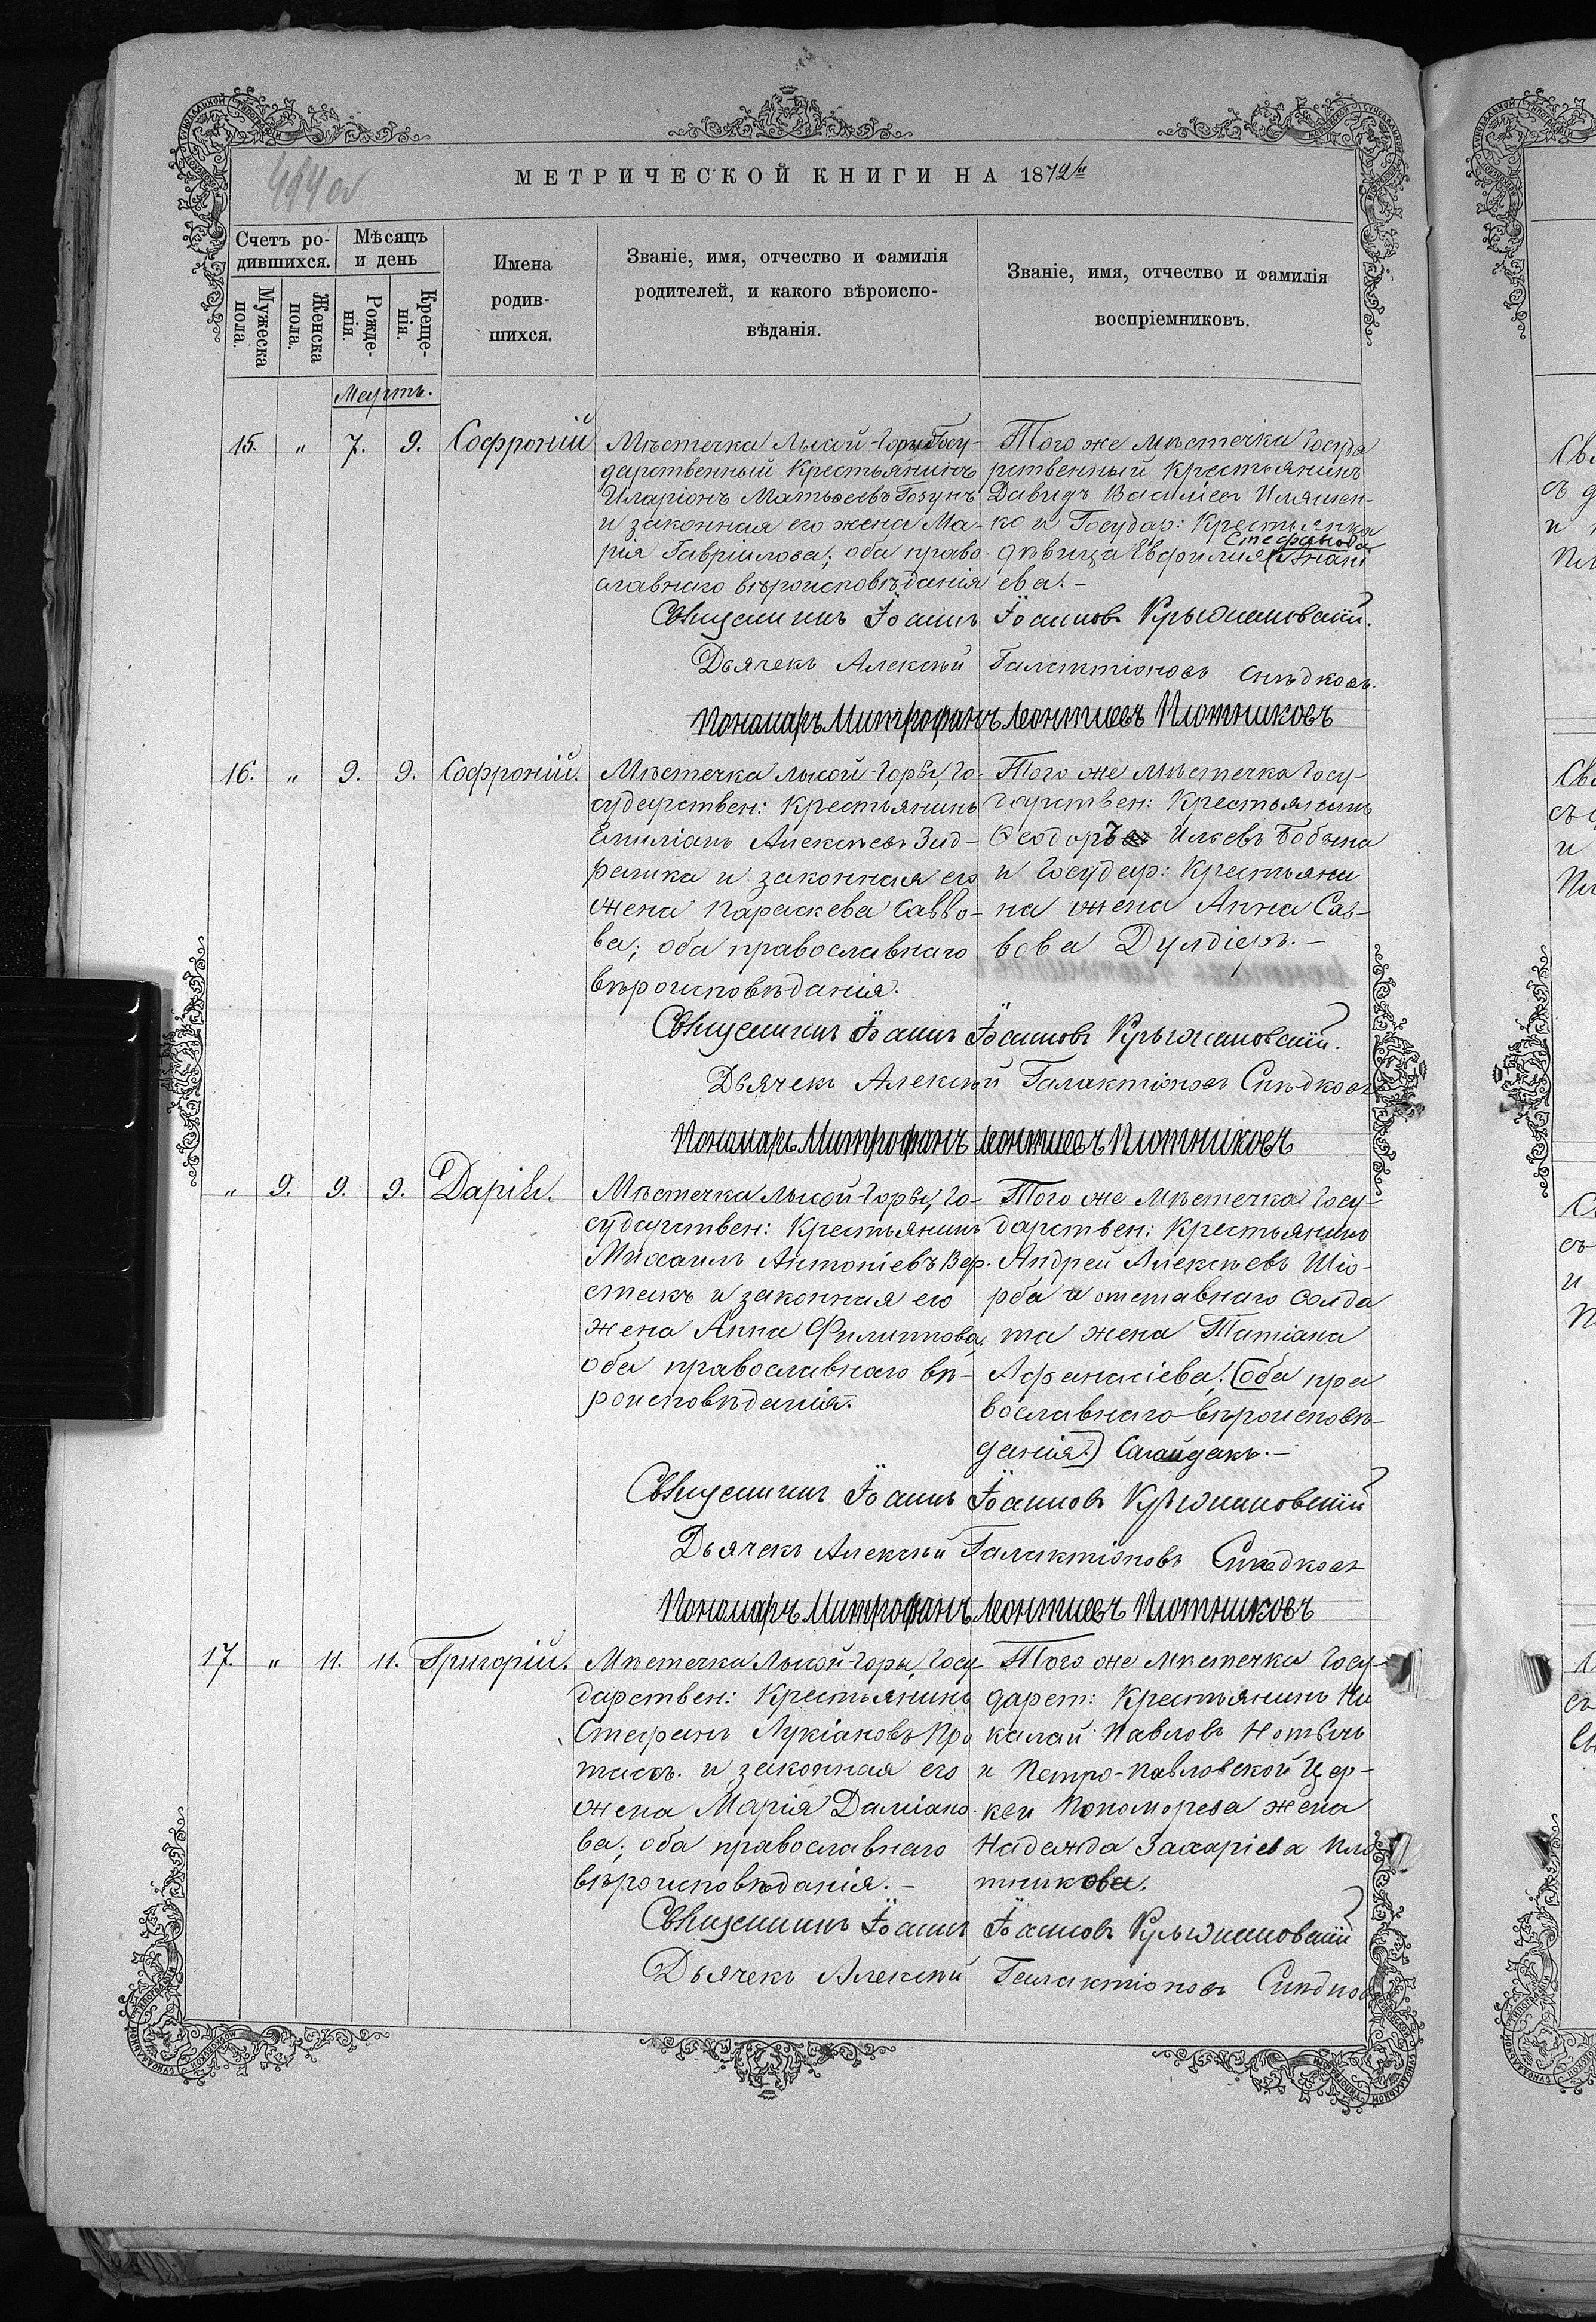 МЕТРИЧЕСКОЙ КНИГИ НА 1872
Счетъ ро-
дившихся.
Мѣсяцъ
и день
Мужеска
пола.
Женска
пола.
Рожде-
нія.
Креще-
нія.
Имена
родив-
шихся.
Званіе, имя, отчество и фамилія
родителей, и какого вѣроиспо-
вѣданія.
Званіе, имя, отчество и фамилія
воспріемниковъ.
Мартъ.
15. „ 7. 9. Софроній
Мѣстечка Лысой-Горы Госу-
дарственный Крестьянинъ
Иларіонъ Матѳеевъ Гозунъ
и законная его жена Ма-
рія Гавріилова; оба право-
славнаго вѣроисповѣданія
Того же мѣстечка Госуда
рственный Крестьянинъ
Давидъ Василіев Иляшен-
ко и Государ: Крестьянка
Стефанова
дѣвица Евфимія Анані
ева. –
Священникъ Іоаннъ Іоанновъ Крыжановскій.
Дьячекъ Алексѣй Галактіоновъ Снѣдковъ.
Пономаръ Митрофанъ Леонтиевъ Плотниковъ
16. „ 9. 9. Софроній.
Мѣстечка Лысой-Горы, Го-
сударствен: Крестьянинъ
Емиліанъ Алексѣевъ Зид-
рашка и законная его
жена Параскева Савво-
ва; оба православнаго
вѣроисповѣданія.
Того же мѣстечка Госу-
дарствен: Крестьянинъ
Ѳеодоръ Ильевъ Бобына
и Государ: Крестьяни
на жена Анна Сав-
вова Дулдіеръ. –
Священникъ Іоаннъ Іоанновъ Крыжановскій.
Дьячекъ Алексѣй Галактіоновъ Снѣдковъ
Пономаръ Митрофанъ Леонтиевъ Плотниковъ
„ 9. 9. 9. Дарія.
Мѣстечка Лысой-Горы, Го-
сударствен: Крестьянинъ
Михаилъ Антоніевъ Вер-
стакъ и законная его
жена Анна Филиппова,
оба православнаго вѣ-
роисповѣданія.
Того же мѣстечка Госу-
дарствен: Крестьянинъ
Андрей Алексѣевъ Що-
рба и отставнаго солда
та жена Татіана
Афанасіева. (оба пра
вославнаго вѣроисповѣ-
данія.) Сагайдакъ. –
Священникъ Іоаннъ Іоанновъ Крыжановскій
Дьячекъ Алексѣй Галактіоновъ Снѣдковъ
Пономаръ Митрофанъ Леонтиевъ Плотниковъ
17. „ 11. 11. Григорій.
Мѣстечка Лысой-Горы, Госу-
дарствен: Крестьянинъ
Стефанъ Лукіановъ Про
тасъ. и законная его
жена Марія Даміано-
ва; оба православнаго
вѣроисповѣданія. –
Того же мѣстечка Госу-
дарст: Крестьянинъ Ни
калай Павловъ
и Петро-Павловской Цер-
кви Пономорева жена
Надежда Захаріева Пло
тникова.
Священникъ Іоаннъ Іоанновъ Крыжановскій
Дьячекъ Алексѣй Галактіоновъ Снѣдков